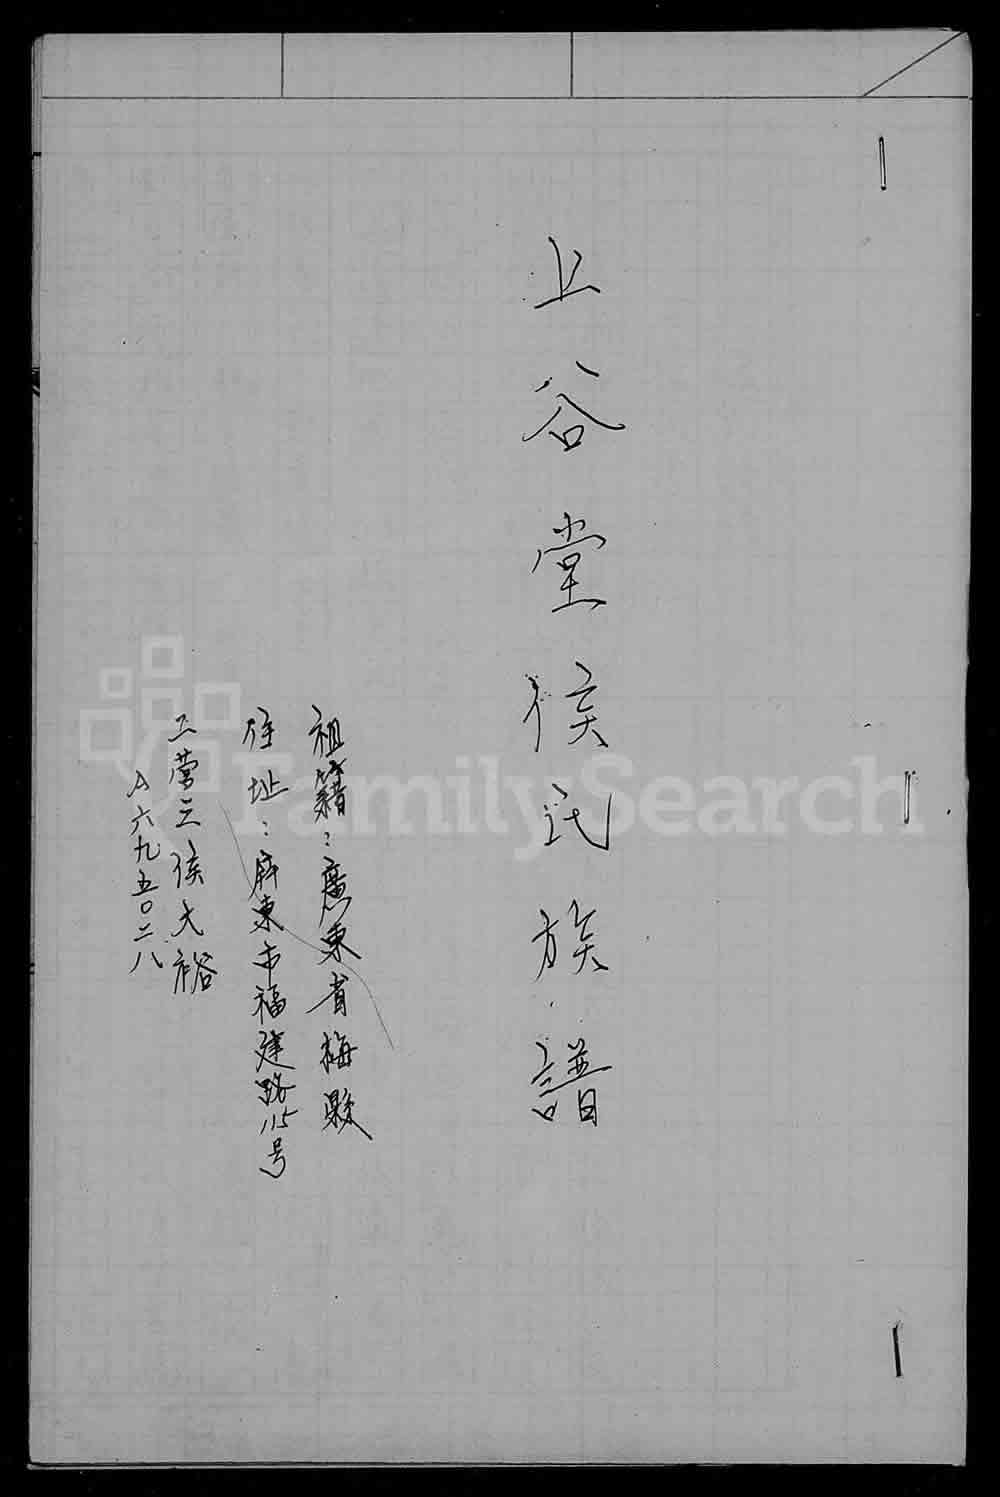 上谷堂侯氏族譜
祖籍：廣東省梅縣
住址：屏東市福建路115号
工營三侯大裕
A六九五〇二八
FamilySearch